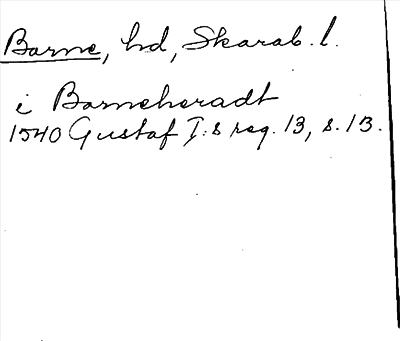 Barne, hd, Skarab. l.
i Barneheradt
1540 Gustaf I:s reg. 13, s. 13.